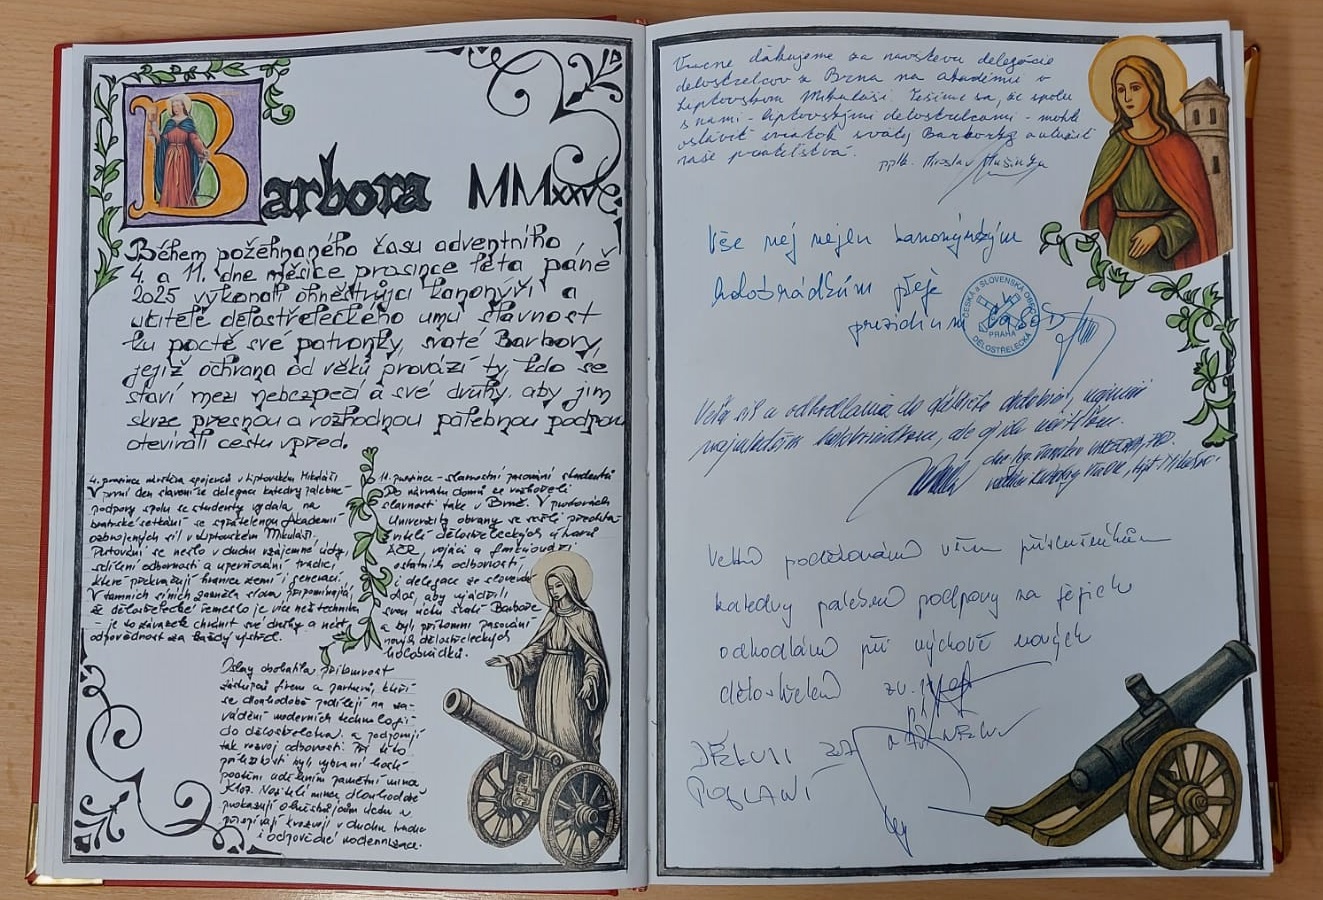 Barbora MMXXV
Během požehnaného času adventního
4. a 11. dne měsíce prosince léta páně
2025 vykonali ohněstrůjci kanonýři a
učitelé dělostřeleckého umu slavnost
ku poctě své patronky, svaté Barbory,
jejíž ochrana od věků provází ty, kdo se
staví mezi nebezpečí a své druhy, aby jim
skrze přesnou a rozhodnou palebnou podporu
otevírali cestu vpřed.
4. prosince návštěva spojenců v Liptovském Mikuláši
V první den slavení se delegace katedry palebné
podpory spolu se studenty vydala na
bratrské setkání se spřátelenou Akademií
ozbrojených sil v Liptovském Mikuláši.
Putování se neslo v duchu vzájemné úcty,
sdílení odbornosti a upevňování tradic,
které překračují hranice zemí i generací.
V tamních síních zazněla slova připomínající,
že dělostřelecké řemeslo je více než technika,
- je to závazek chránit své druhy a nést
odpovědnost za každý výstřel.
11. prosince - slavnostní pasování studentů
Po návratu domů se rozhořeli
slavnosti také v Brně. V prostorách
Univerzity obrany se sešli představ-
itelé dělostřeleckých útvarů
AČR, vojáci a
ostatních odborností,
i delegace ze slovenské
AOS, aby vyjádřili
svou úctu svaté Barboře
a byli přítomni pasování
nových dělostřeleckých
holobrádků.
Oslavy obohatila přítomnost
zástupců firem a partnerů, kteří
se dlouhodobě podílejí na za-
vádění moderních technologií
do dělostřelectva a podporují
tak rozvoj odbornosti. Při této
příležitosti byli vybraní hosté
poctěni udělením pamětní mince
Nositelé mince dlouhodobě
prokazují
v duchu tradic
i odpovědné modernizace.
Vrelo ďakujeme za návštevu delegácie
delostrelcov z Brna na akadémii v
Liptovskom Mikuláši. Tešíme sa, že spolu
s nami - liptovskými delostrelcami - mohli
osláviť sviatok svätej Barborky a utužiť
naše priateľstvá.
pplk. Miroslav
Vše nej nejen kanonýrským
holobrádkům přeje
prezidium
ČESKÁ a SLOVENSKÁ OBEC
PRAHA
DĚLOSTŘELECKÁ
Veľa síl a odhodlania do ďalšieho
najmladším holobriadkom, ale aj ich učiteľom.
Velké poděkování všem příslušníkům
katedry palebné podpory za jejich
odhodlání při výchově nových
dělostřelců
DĚKUJI ZA